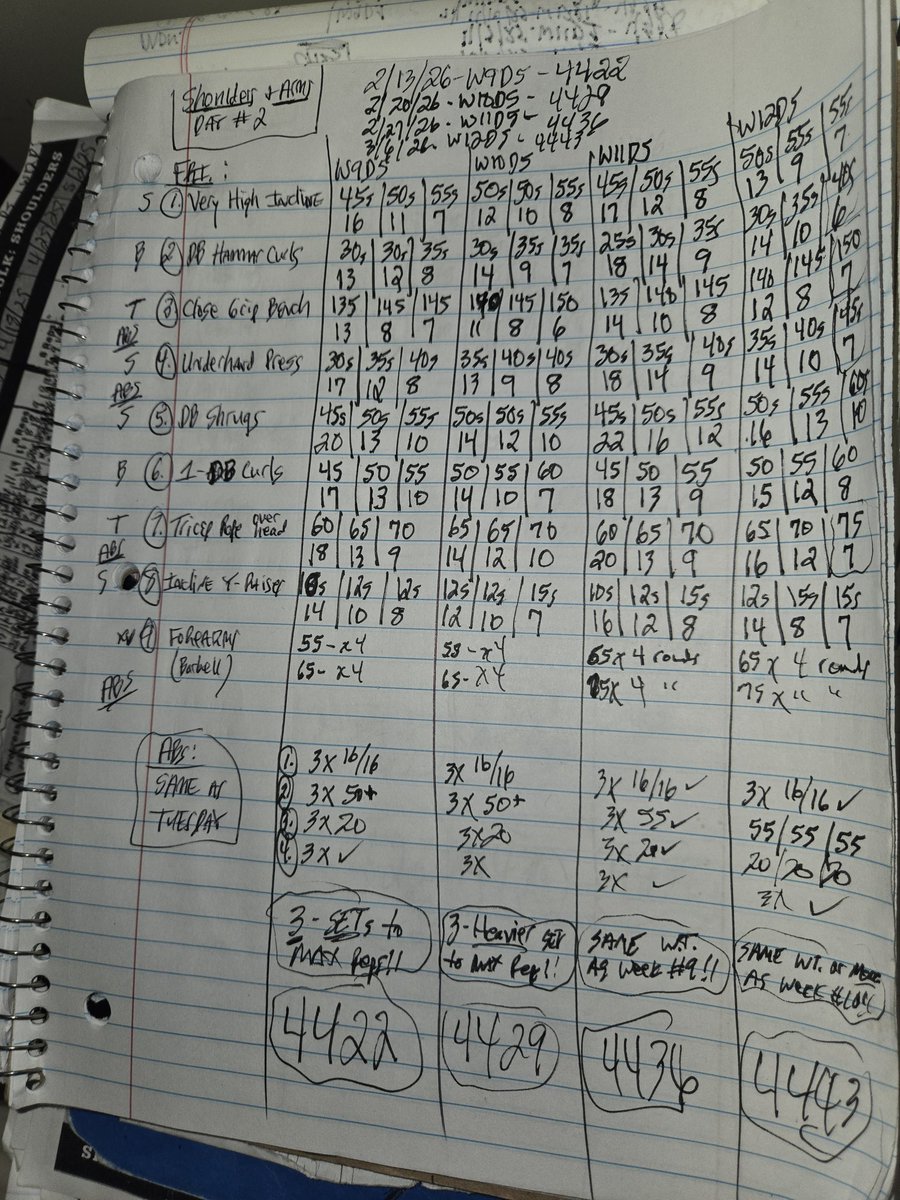 Shoulders + Arms
DAY #2
2/13/26 - W9D5 - 4422
2/20/26 - W10D5 - 4429
2/27/26 - W11D5 - 4436
3/6/26 - W12D5 - 4443
FRI.: W9D5 W10D5 W11D5 W12D5
S 1. Very High Incline 45s | 50s | 55s 50s | 50s | 55s 45s | 50s | 55s 50s | 55s | 55s
16 | 11 | 7 12 | 10 | 8 17 | 12 | 8 13 | 9 | 7
B 2. DB Hammer Curls 30s | 30s | 35s 30s | 35s | 35s 25s | 30s | 35s 30s | 35s | 40s
13 | 12 | 8 14 | 9 | 7 18 | 14 | 9 14 | 10 | 6
T 3. Close Grip Bench 135 | 145 | 145 140 | 145 | 150 135 | 140 | 145 140 | 145 | 150
ABS 13 | 8 | 7 11 | 8 | 6 14 | 10 | 8 12 | 8 | 7
S 4. Underhand Press 30s | 35s | 40s 35s | 40s | 40s 30s | 35s | 40s 35s | 40s | 45s
ABS 17 | 12 | 8 13 | 9 | 8 18 | 14 | 9 14 | 10 | 7
S 5. DB Shrugs 45s | 50s | 55s 50s | 50s | 55s 45s | 50s | 55s 50s | 55s | 60s
20 | 13 | 10 14 | 12 | 10 22 | 16 | 12 16 | 13 | 10
B 6. 1-DB Curls 45 | 50 | 55 50 | 55 | 60 45 | 50 | 55 50 | 55 | 60
17 | 13 | 10 14 | 10 | 7 18 | 13 | 9 15 | 12 | 8
T 7. Tricep Rope over head 60 | 65 | 70 65 | 65 | 70 60 | 65 | 70 65 | 70 | 75
ABS 18 | 13 | 9 14 | 12 | 10 20 | 13 | 9 16 | 12 | 7
S 8. Incline Y-Raises 10s | 12s | 12s 12s | 12s | 15s 10s | 12s | 15s 12s | 15s | 15s
14 | 10 | 8 12 | 10 | 7 16 | 12 | 8 14 | 8 | 7
9. FOREARMS 55 - x4 55 - x4 65 x 4 rounds 65 x 4 rounds
(Barbell) 65 - x4 65 - x4 75 x 4 " 75 x " "
ABS
ABS:
SAME AS
TUESDAY
1. 3x 16/16 3x 16/16 3x 16/16 ✓ 3x 16/16 ✓
2. 3x 50+ 3x 50+ 3x 55 ✓ 55/55/55
3. 3x20 3x20 3x 20 ✓ 20/20/20
4. 3x ✓ 3x 3x ✓ 3x ✓
3 - SETs to
MAX Reps!!
3 - Heavier SET
to MAX Reps!!
SAME WT.
AS Week #9!!
SAME WT. or More
AS Week #10!!
4422 4429 4436 4443